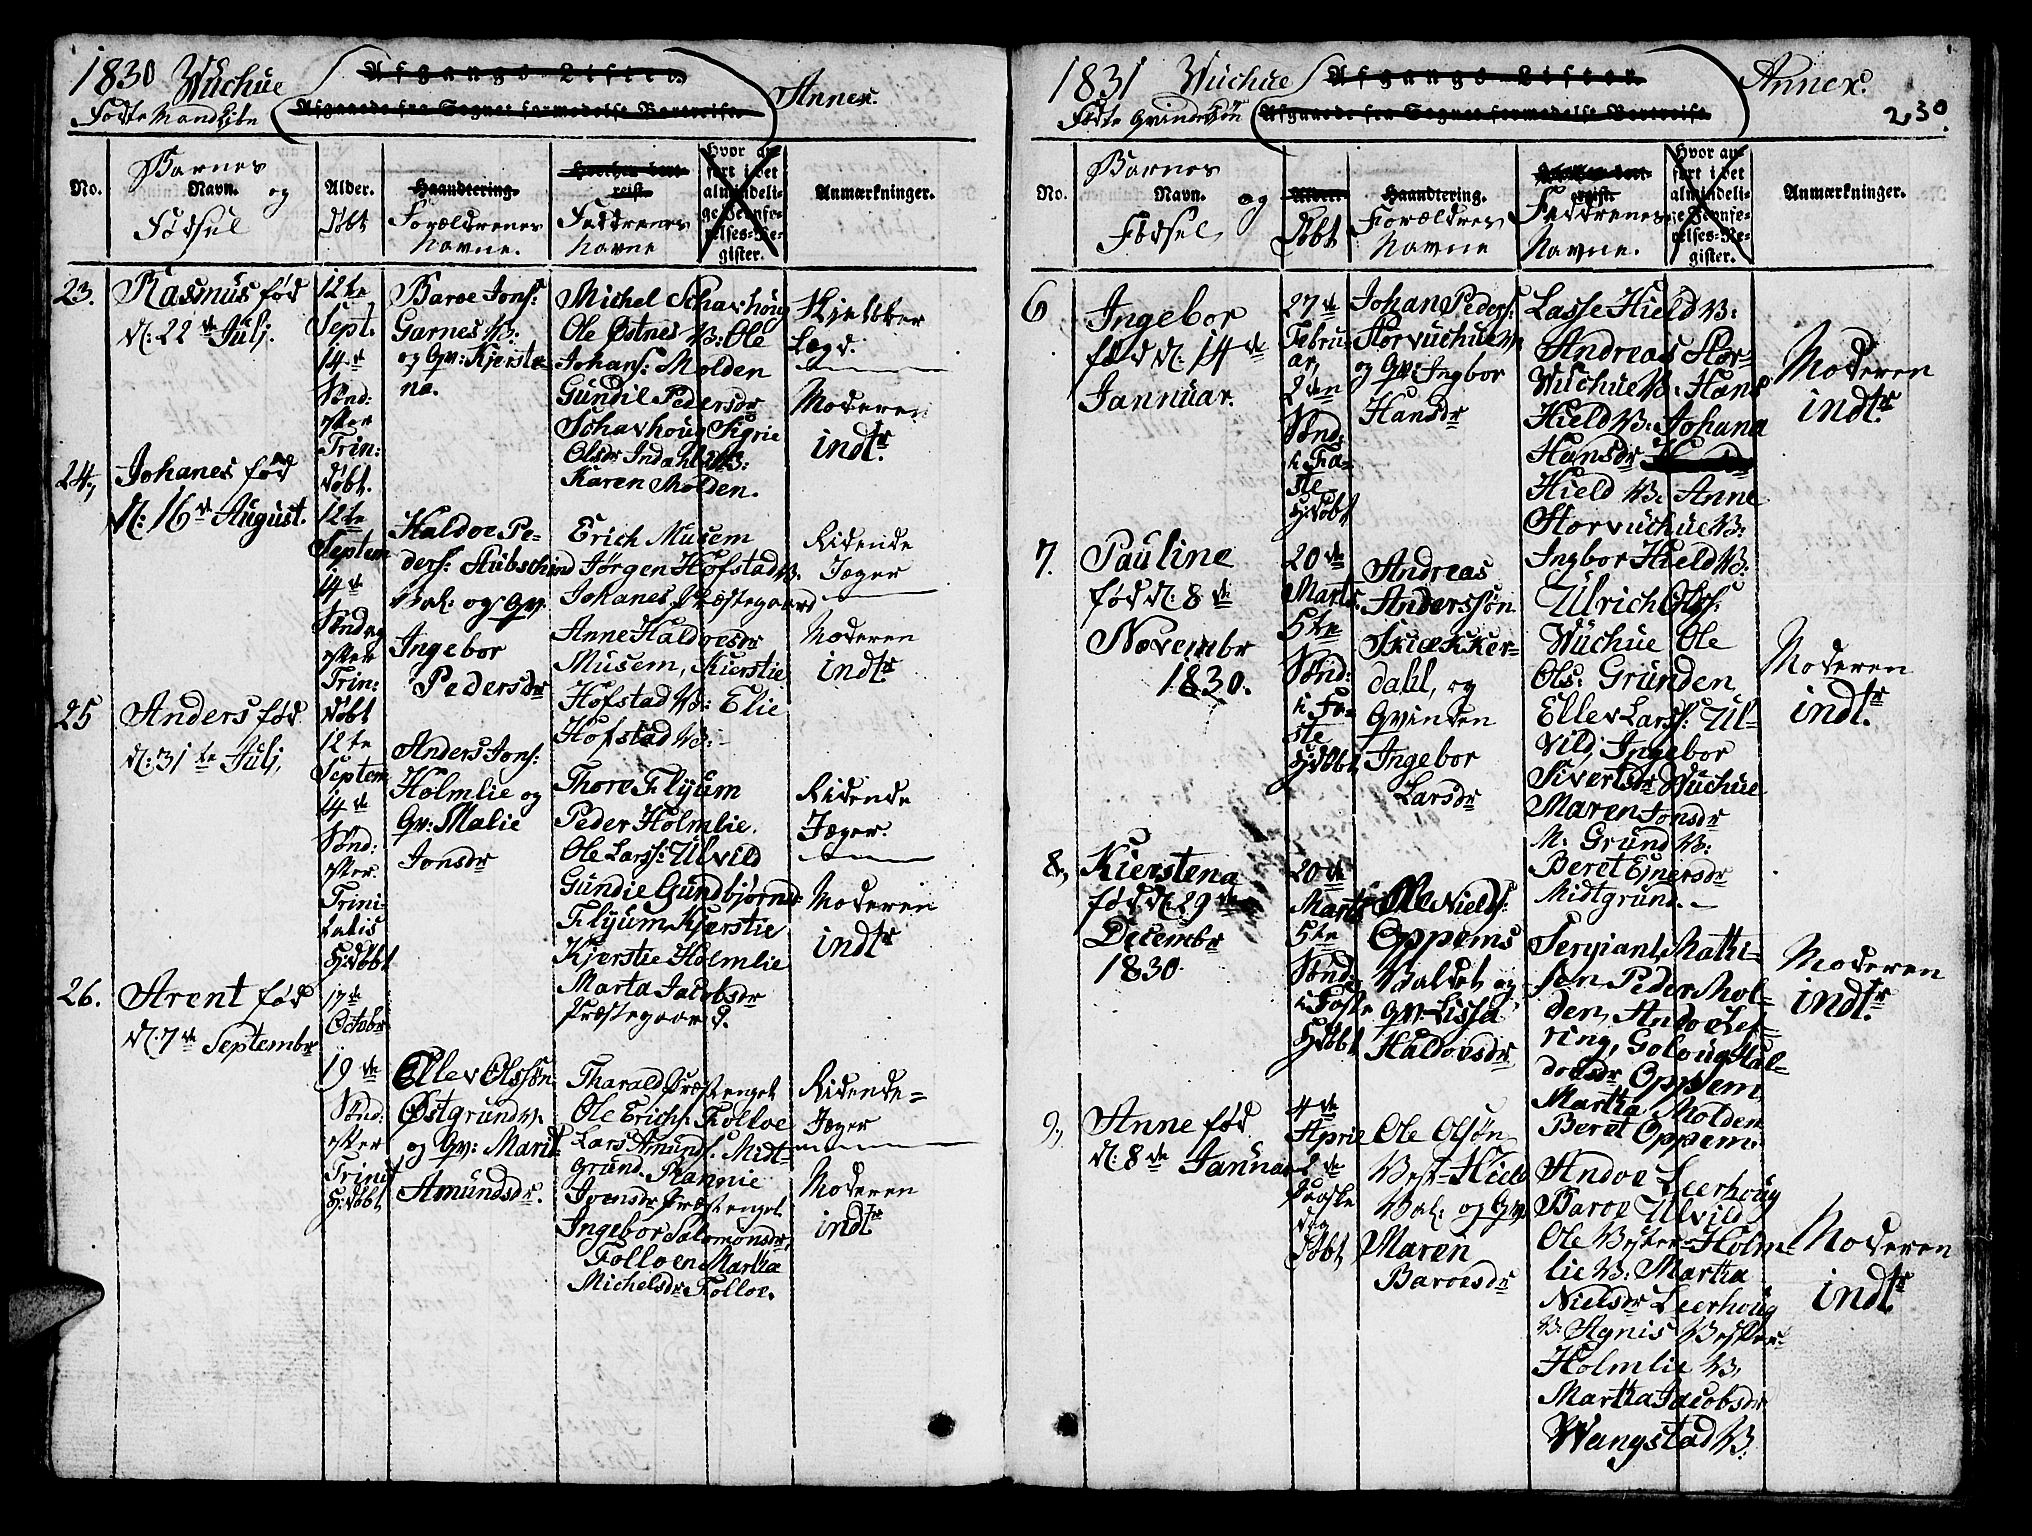 1830 Wuchue
Annex.
Afgangs-Listen
Afgaaede fra Sognet formedelst Bortreise
Fødte Mandkiøn
No.
Barnes
Navn. og
Fødsel
Alder.
Døbt
Haandtering.
Forældrenes
Navne.
Hvorhen bort-
reist.
Faddrenes
Navne
Hvor an-
ført i det
almindeli-
ge Jevnfø-
relses-Re-
gister.
Anmærkninger.
23.
Rasmus fød
d: 22de Julj.
12te
Sept:
14de
Sønd:
efter
Trin:
døbt.
Baroe Jons:
Garnes V:
og Gv: Kjerste-
na.
Michel Schavhoug
Ole Østnes V: Ole
Johans: Molden
Gundil Pedersdr
Schavhoug Sigrie
Olsdr Indahl V:
Karen Molden.
Skielbker
Lægd.
Moderen
indtr.
24,
Johanes fød
d: 16de August.
12te
Septem
14de
Søndag
efter
Trin:
døbt
Haldoe Pe-
ders: Stubschind
Bal: og Gv:
Ingebor
Pedersdr
Erich Musem
Jørgen Hofstad V:
Johanes Præstegaard
Anne Haldoesdr
Musem, Kierstie
Hofstad V: Elie
Hofstad V:
Ridende
Jæger
Moderen
indtr
25
Anders fød
d: 31te Julj,
12te
Septem
14de
Sønd:
efter
Trini-
tatis
Hdøbt
Anders Jons:
Holmlie og
Gv: Malie
Jonsdr
Thore Flyum
Peder Holmlie.
Ole Larss: Ulvild
Gundie Gundbjørnsd
Flyum Kjerstie
Kjerstie Holmlie
Marta Jacobsdr
Præstegaard.
Ridende
Jæger.
Moderen
indtr
26.
Arent fød
d: 7de Septembr
17de
Octobr
19de
Sønd:
efter
Trinit
Hdøbt
Ellev Olssøn
Østgrund V:
og Gv: Marit
Amundsdr.
Tharald Præstenget
Ole Erichs: Folloe
Lars Amunds: Midt-
grund. Rannie
Joensdr Præstenget
Ingebor Salomonsdr,
Folloe Martha
Michelsdr Folloe.
Ridende-
Jæger
Moderen
indtr
1831 Wuchue
Annex.
230.
Afgangs-Listen
Afgaaede fra Sognet formedelst Bortreise
Fødte Qvindekiøn
No.
Barnes
Navn. og
Fødsel
Alder.
Døbt
Haandtering.
Forældrenes
Navne
Hvorhen bort-
reist.
Faddrenes
Navne.
Hvor an-
ført i det
almindeli-
ge Jevnfø-
relses-Re-
gister.
Anmærkninger.
6
Ingebor
fød d: 14de
Jannuar.
27de
Febru-
ar,
2den
Sønd:
i Fa-
ste
Hdøbt
Johan Peders:
Storvuchue V:
og Gv: Ingbor
Hansdr
Lasse Hield V:
Andreas Stor-
Wuchue V: Hans
Hield V: Johana
Hansdr
Hield V: Anne
Storvuchue V:
Ingbor Hield V:
Moderen
indtr
7.
Pauline
fød d: 8de
Novembr
1830.
20de
Marts
5te
Sønd:
i Fa-
ste
Hdøbt
Andreas
Anderssøn
Skiækker-
dahl, og
Qvinden
Ingebor
Larsdr
Ulrich Ols:
Wuchue Ole
Ols: Grunden
Ellev Larss: Ul-
vild, Ingebor
Sivertsdr Wuchue
Maren Jonsdr
M: Grund V:
Beret Ejnersdr
Midtgrund.
Moderen
indtr
8,
Kierstena
fød d: 29de
Decembr
1830.
20de
Marts
5te
Sønd:
i Faste
Hdøbt
Ole Niels:
Oppems
Valdet og
Gv: Lissa
Haldoesdr
Sergiant Mathi-
sen Peder Mol-
den, Andoe Ler-
ring, Goloug Hal-
doesdr Oppem
Martha Molden
Beret Oppem.
Moderen
indtr
9,
Anne fød
d: 8de Januar
4de
April
2de
Paaske
dag
Døbt
Ole Olsøn
Vest-Hield
Bal: og Gv:
Maren
Baroesdr
Andoe Leerhoug
Baroe Ulvild
Ole Vester-Holm-
lie V: Martha
Nielsdr Leerhoug
V: Agnis Vester-
Holmlie V,
Martha Jacobsdr
Wangstad V:
Moderen
indtr